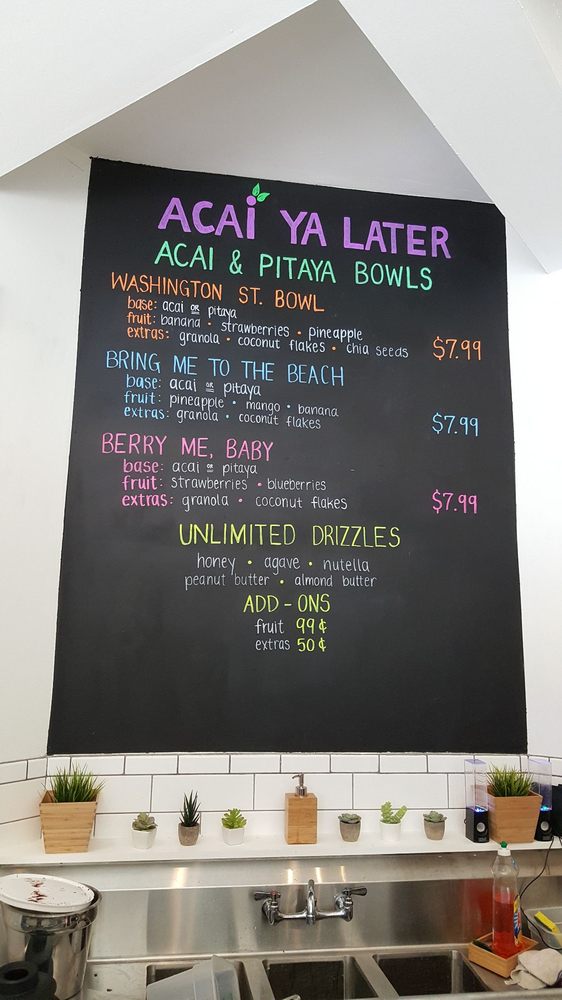 ACAI YA LATER
ACAI & PITAYA BOWLS
WASHINGTON ST. BOWL
base: acai or pitaya
fruit: banana • strawberries • pineapple
extras: granola • coconut flakes • chia seeds $7.99
BRING ME TO THE BEACH
base: acai or pitaya
fruit: pineapple • mango • banana
extras: granola • coconut flakes $7.99
BERRY ME, BABY
base: acai or pitaya
fruit: strawberries • blueberries
extras: granola • coconut flakes $7.99
UNLIMITED DRIZZLES
honey • agave • nutella
peanut butter • almond butter
ADD-ONS
fruit 99¢
extras 50¢